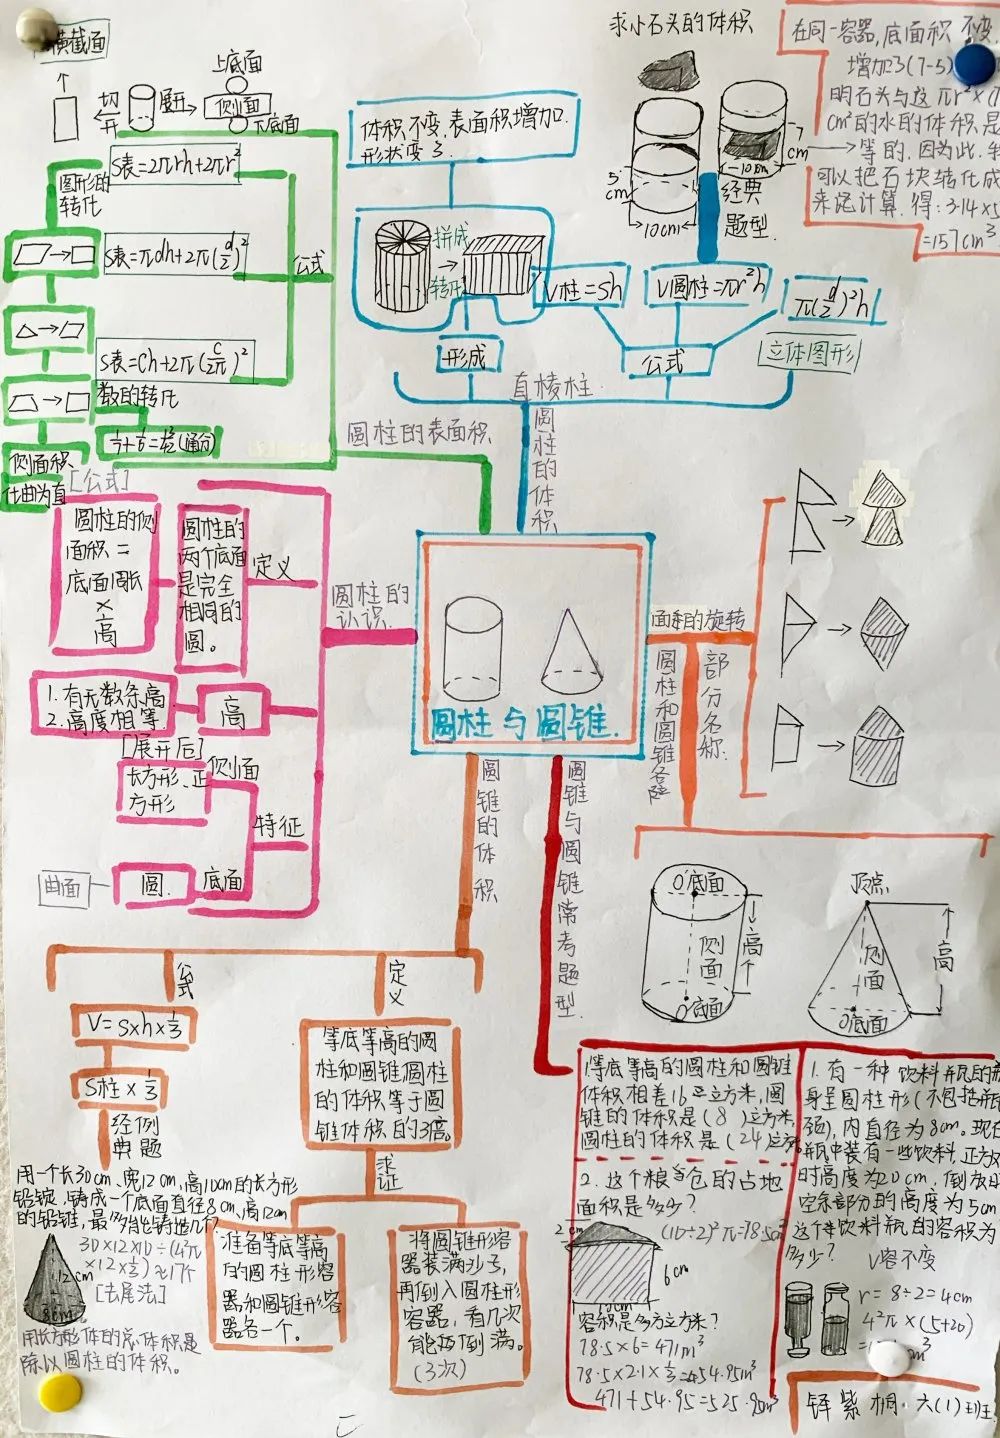 横截面
切
开
展开
上底面
侧面
下底面
图形的
转化
S表=2πrh+2πr²
S表=πdh+2π(d/2)²
S表=Ch+2π(C/2π)²
公式
数的转化
(通分)
侧面积
化曲为直
圆柱的表面积
体积不变,表面积增加.
形状变了.
拼成
转化
形成
V柱=Sh
V圆柱=πr²h
π(d/2)²h
公式
立体图形
直棱柱
圆柱的体积
求小石头的体积
5
cm
7
cm
10cm
10cm
经典
题型.
在同一容器,底面积不变,
增加了(7-5)
明石头与这πr²×(7
cm²的水的体积是
等的.因为此,
可以把石块转化成
来记计算.得:3.14×5
=157cm³.
[公式]
圆柱的侧
面积=
底面周长
×
高
圆柱的
两个底面
是完全
相同的
圆。
定义
圆柱的
认识.
1.有无数条高
2.高度相等.
高
[展开后]
长方形、正
方形
侧面
特征
曲面
圆.
底面
圆柱与圆锥.
面积的旋转
部分名称.
顶点
O'底面
侧面
高
O'底面
侧面
高
O底面
圆锥的体积
公式
V=S×h×⅓
S柱×⅓
经例
典题
用一个长30cm,宽12cm,高10cm的长方形
铅锭,铸成一个底面直径8cm,高12cm
的铅锥,最多能铸造几个?
30×12×10÷(4²π
×12×⅓)≈17个
[去尾法]
12cm
8cm
用长方形体的总体积是
除以圆柱的体积。
定义
等底等高的圆
柱和圆锥,圆柱
的体积等于圆
锥体积的3倍。
求证
准备等底等高
的圆柱形容
器和圆锥形容
器各一个。
将圆锥形容
器装满沙子,
再倒入圆柱形
容器,看几次
能倒满。
(3次)
圆锥与圆锥常考题型.
1.等底等高的圆柱和圆锥
体积相差16立方米,圆
锥的体积是(8)立方米,
圆柱的体积是(24)立方
2.这个粮仓的占地
面积是多少?
(10÷2)²π=78.5
2cm
6cm
10cm
容积是多少立方米?
78.5×6=471m³
78.5×2.1×⅓=54.95m³
471+54.95=525.95m³
1.有一种饮料瓶的
身呈圆柱形(不包括瓶
颈),内直径为8cm.现在
瓶中装有一些饮料,正方
时高度为20cm,倒放时
空余部分的高度为5cm
这个饮料瓶的容积为
多少?
V容不变
r=8÷2=4cm
4²π×(5+20)
铎紫桐·六(1)班